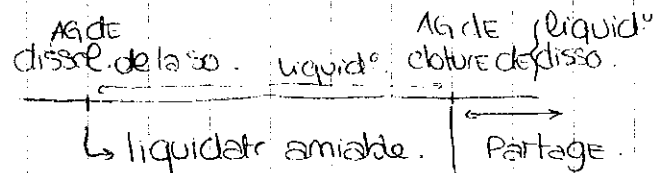 AG de
dissol. de la so.
liquid°
AG de
cloture de { liquid° disso.
↳ liquidatr amiable.
Partage.